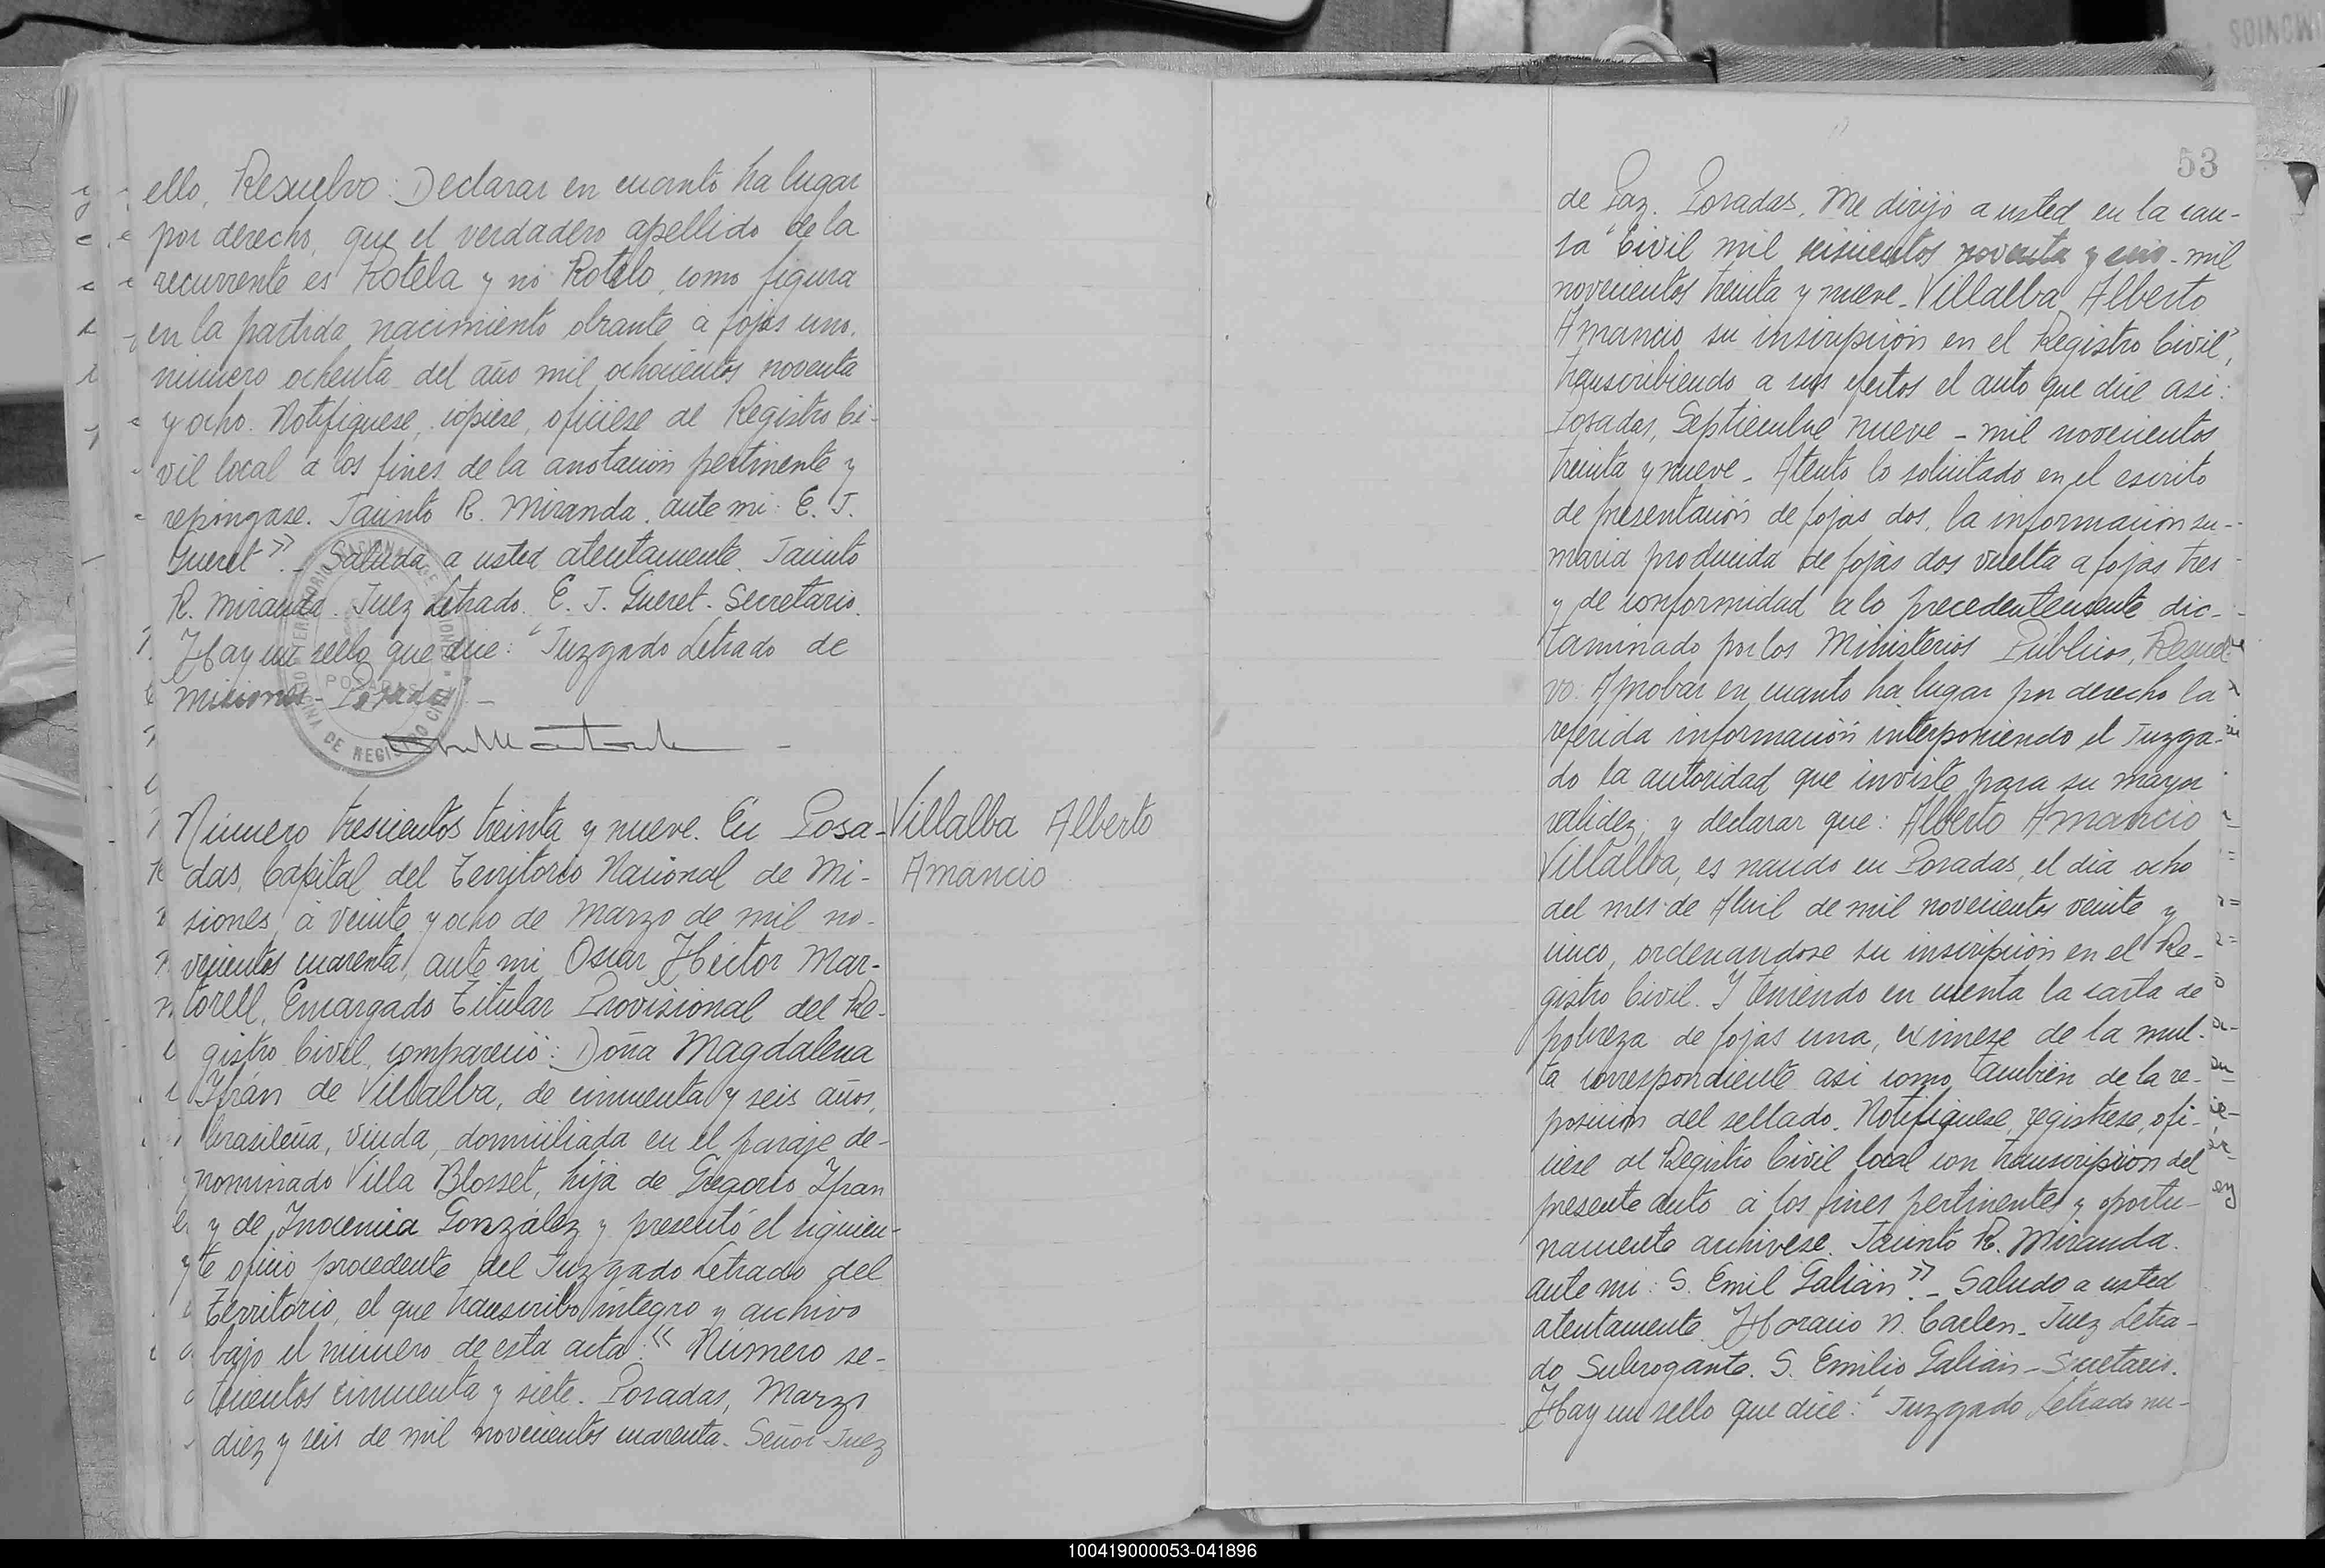 ello, Resuelvo: Declarar en cuanto ha lugar
por derecho, que el verdadero apellido de la
recurrente es Rotela y no Rotelo, como figura
en la partida nacimiento obrante a fojas uno.
número ochenta del año mil ochocientos noventa
y ocho. Notifiquese, copiese, oficiese al Registro Ci-
vil local a los fines de la anotación pertinente y
repongase. Jacinto R. Miranda. ante mi: E. J.
Gueret». - Saluda a usted atentamente. Jacinto
R. Miranda. Juez Letrado. E. J. Gueret. Secretario.
Hay un sello que dice: "Juzgado Letrado de
Misiones - Posadas -
POSADAS
Número trescientos treinta y nueve. En Posa-
das, Capital del Territorio Nacional de Mi-
siones, á veinte y ocho de Marzo de mil no-
vecientos cuarenta, ante mi Oscar Héctor Mar-
torell, Encargado Titular Provisional del Re-
gistro Civil, compareció: Doña Magdalena
Ifrán de Villalba, de cincuenta y seis años,
brasileña, viuda, domiciliada en el paraje de-
nominado Villa Blosset, hija de Gregorio Ifran
y de Inocencia González y presentó el siguien-
te oficio procedente del Juzgado Letrado del
Territorio, el que transcribo íntegro y archivo
bajo el número de esta acta: « Número se-
tecientos cincuenta y siete. Posadas, Marzo
diez y seis de mil novecientos cuarenta. Señor Juez
Villalba Alberto
Amancio
53
de Paz. Posadas. Me dirijo a usted en la cau-
sa "Civil mil seiscientos noventa y seis - mil
novecientos treinta y nueve - Villalba Alberto
Amancio su inscripción en el Registro Civil",
transcribiendo a sus efectos el auto que dice asi:
Posadas, Septiembre nueve - mil novecientos
treinta y nueve - Atento lo solicitado en el escrito
de presentación de fojas dos, la información su-
maria producida de fojas dos vuelta a fojas tres
y de conformidad a lo precedentemente dic-
taminado por los Ministerios Públicos, Resuel
vo: Aprobar en cuanto ha lugar por derecho la
referida información interponiendo el Juzga-
do la autoridad que inviste para su mayor
validez; y declarar que: Alberto Amancio
Villalba, es nacido en Posadas, el dia ocho
del mes de Abril de mil novecientos veinte y
cinco, ordenandose su inscripción en el Re-
gistro Civil. Y teniendo en cuenta la carta de
pobreza de fojas una, eximese de la mul-
ta correspondiente asi como también de la re-
posición del sellado. Notifiquese, registrese, ofi-
ciese al Registro Civil local con transcripción del
presente auto a los fines pertinentes y oportu-
namente archivese. Jacinto R. Miranda.
ante mi: S. Emil Galián». - Saludo a usted
atentamente. Horacio N. Carlen - Juez Letra-
do Subrogante. S. Emilio Galián - Secretario.
Hay un sello que dice: "Juzgado Letrado nu-
100419000053-041896